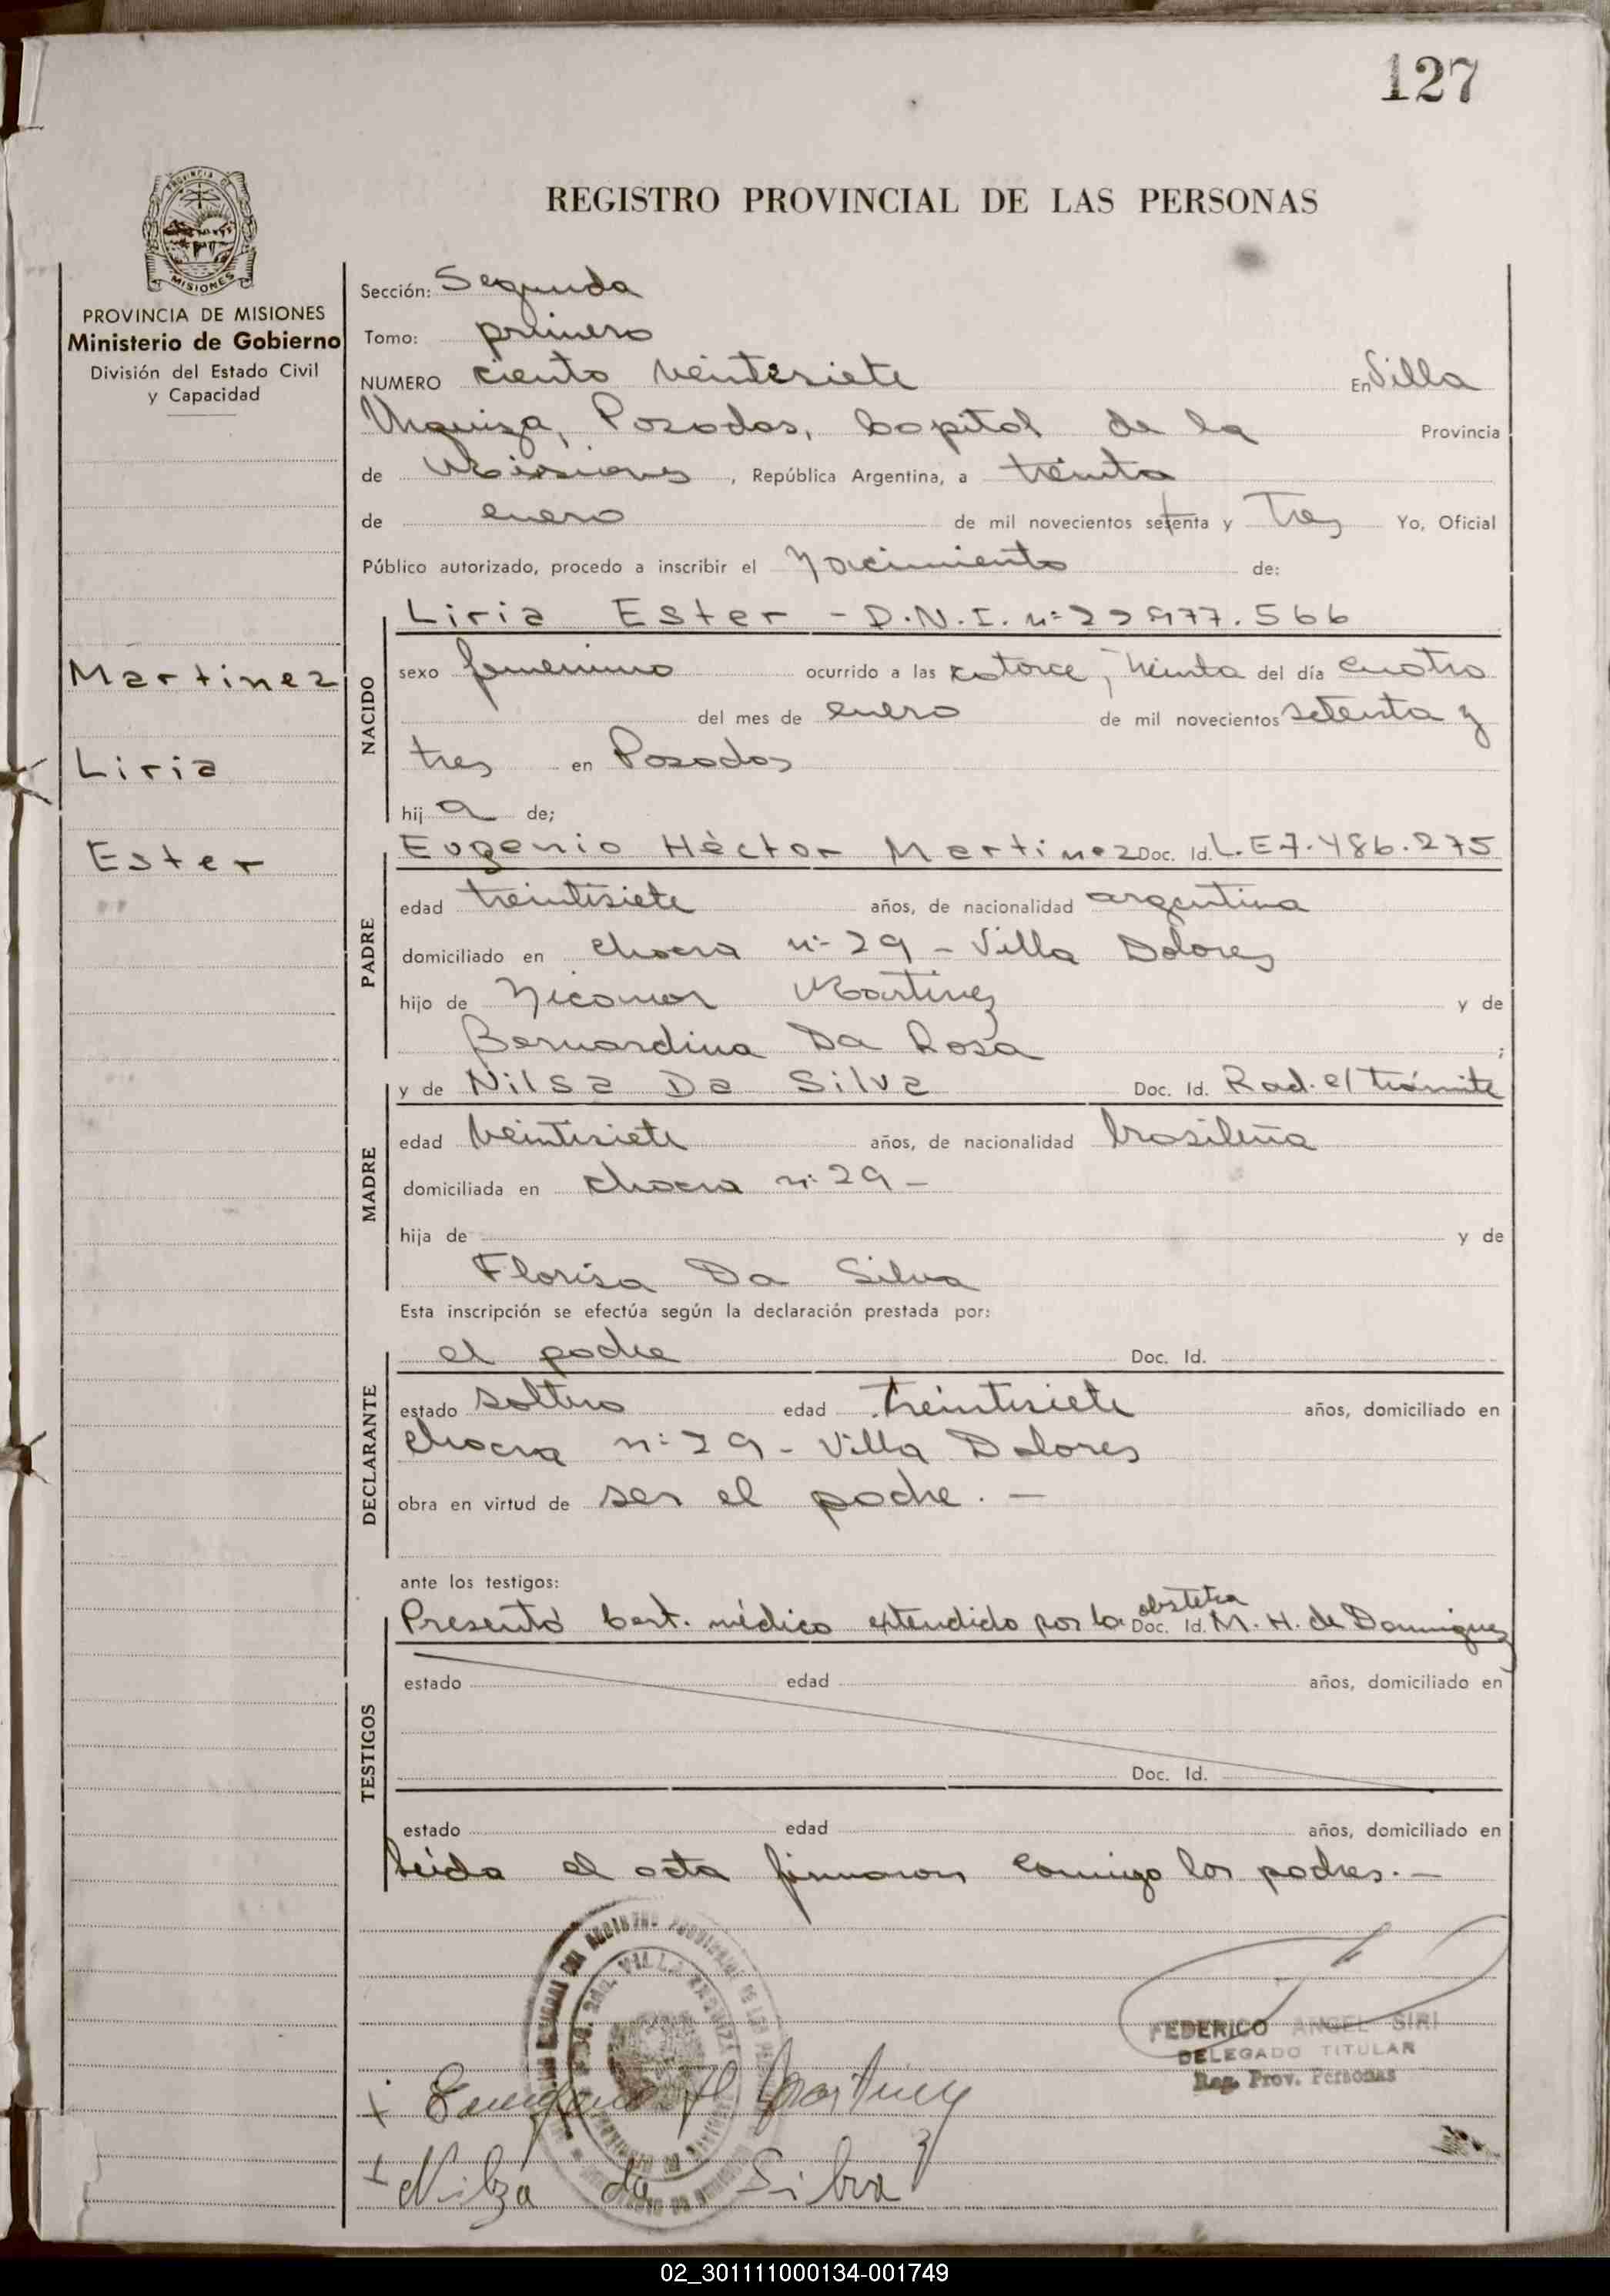 127
REGISTRO PROVINCIAL DE LAS PERSONAS
PROVINCIA DE
MISIONES
PROVINCIA DE MISIONES
Ministerio de Gobierno
División del Estado Civil
y Capacidad
Martinez
Liria
Ester
Sección: Segunda
Tomo: primero
NUMERO ciento veintisiete En Villa
Urquiza, Posadas, Capital de la Provincia
de Misiones, República Argentina, a treinta
de enero de mil novecientos setenta y Tres Yo, Oficial
Público autorizado, procedo a inscribir el Nacimiento de:
NACIDO
Liria Ester - D.N.I. nº 22977.566
sexo femenino ocurrido a las catorce, treinta del día cuatro
del mes de enero de mil novecientos setenta y
tres en Posadas
hij a de;
PADRE
Eugenio Hèctor Martinez Doc. Id. L.E 7.486.275
edad treintisiete años, de nacionalidad argentina
domiciliado en chacra nº 29 - Villa Dolores
hijo de Nicanor Martinez y de
Bernardina Da Rosa ;
MADRE
y de Nilsa Da Silva Doc. Id. Rad. e/ trámite
edad veintisiete años, de nacionalidad brasileña
domiciliada en chacra nº 29 -
hija de y de
Florisa Da Silva
Esta inscripción se efectúa según la declaración prestada por:
DECLARANTE
el padre Doc. Id.
estado soltero edad treintisiete años, domiciliado en
chacra nº 29 - Villa Dolores
obra en virtud de ser el padre. -
ante los testigos:
TESTIGOS
Presentó Cert. médico extendido por la obstetra Doc. Id. M. H. de Dominguez
estado edad años, domiciliado en
Doc. Id.
estado edad años, domiciliado en
Leida el acta firmaron conmigo los padres. -
FEDERICO ANGEL SIRI
DELEGADO TITULAR
Reg. Prov. Personas
Eugenio H Martinez
Nilza da Silva
02_301111000134-001749